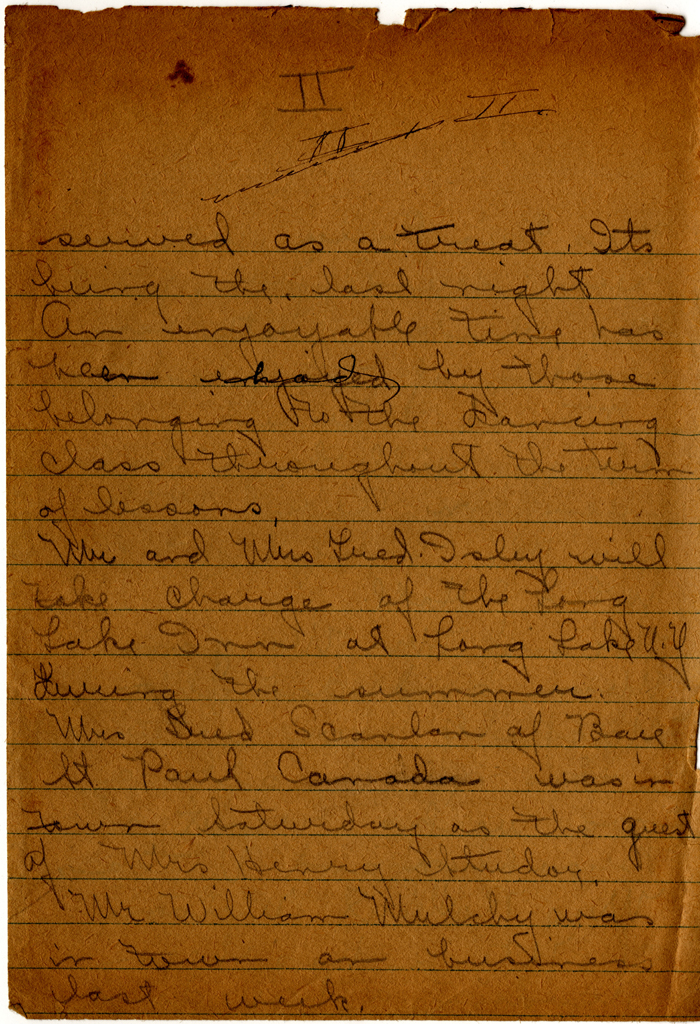 II
II II.
served as a treat. Its
being the last night
An enjoyable time has
been enjoyed by those
belonging to the Dancing
class throughout the term
of lessons.
Mr and Mrs Fred. Isley will
take charge of the Long
Lake Inn at Long Lake N.Y
During the summer.
Mrs Fred Scanlan of Baie
St Paul Canada was in
town Saturday as the guest
of Mrs Henry Studor.
Mr William Mulchy was
in town on business
last week.